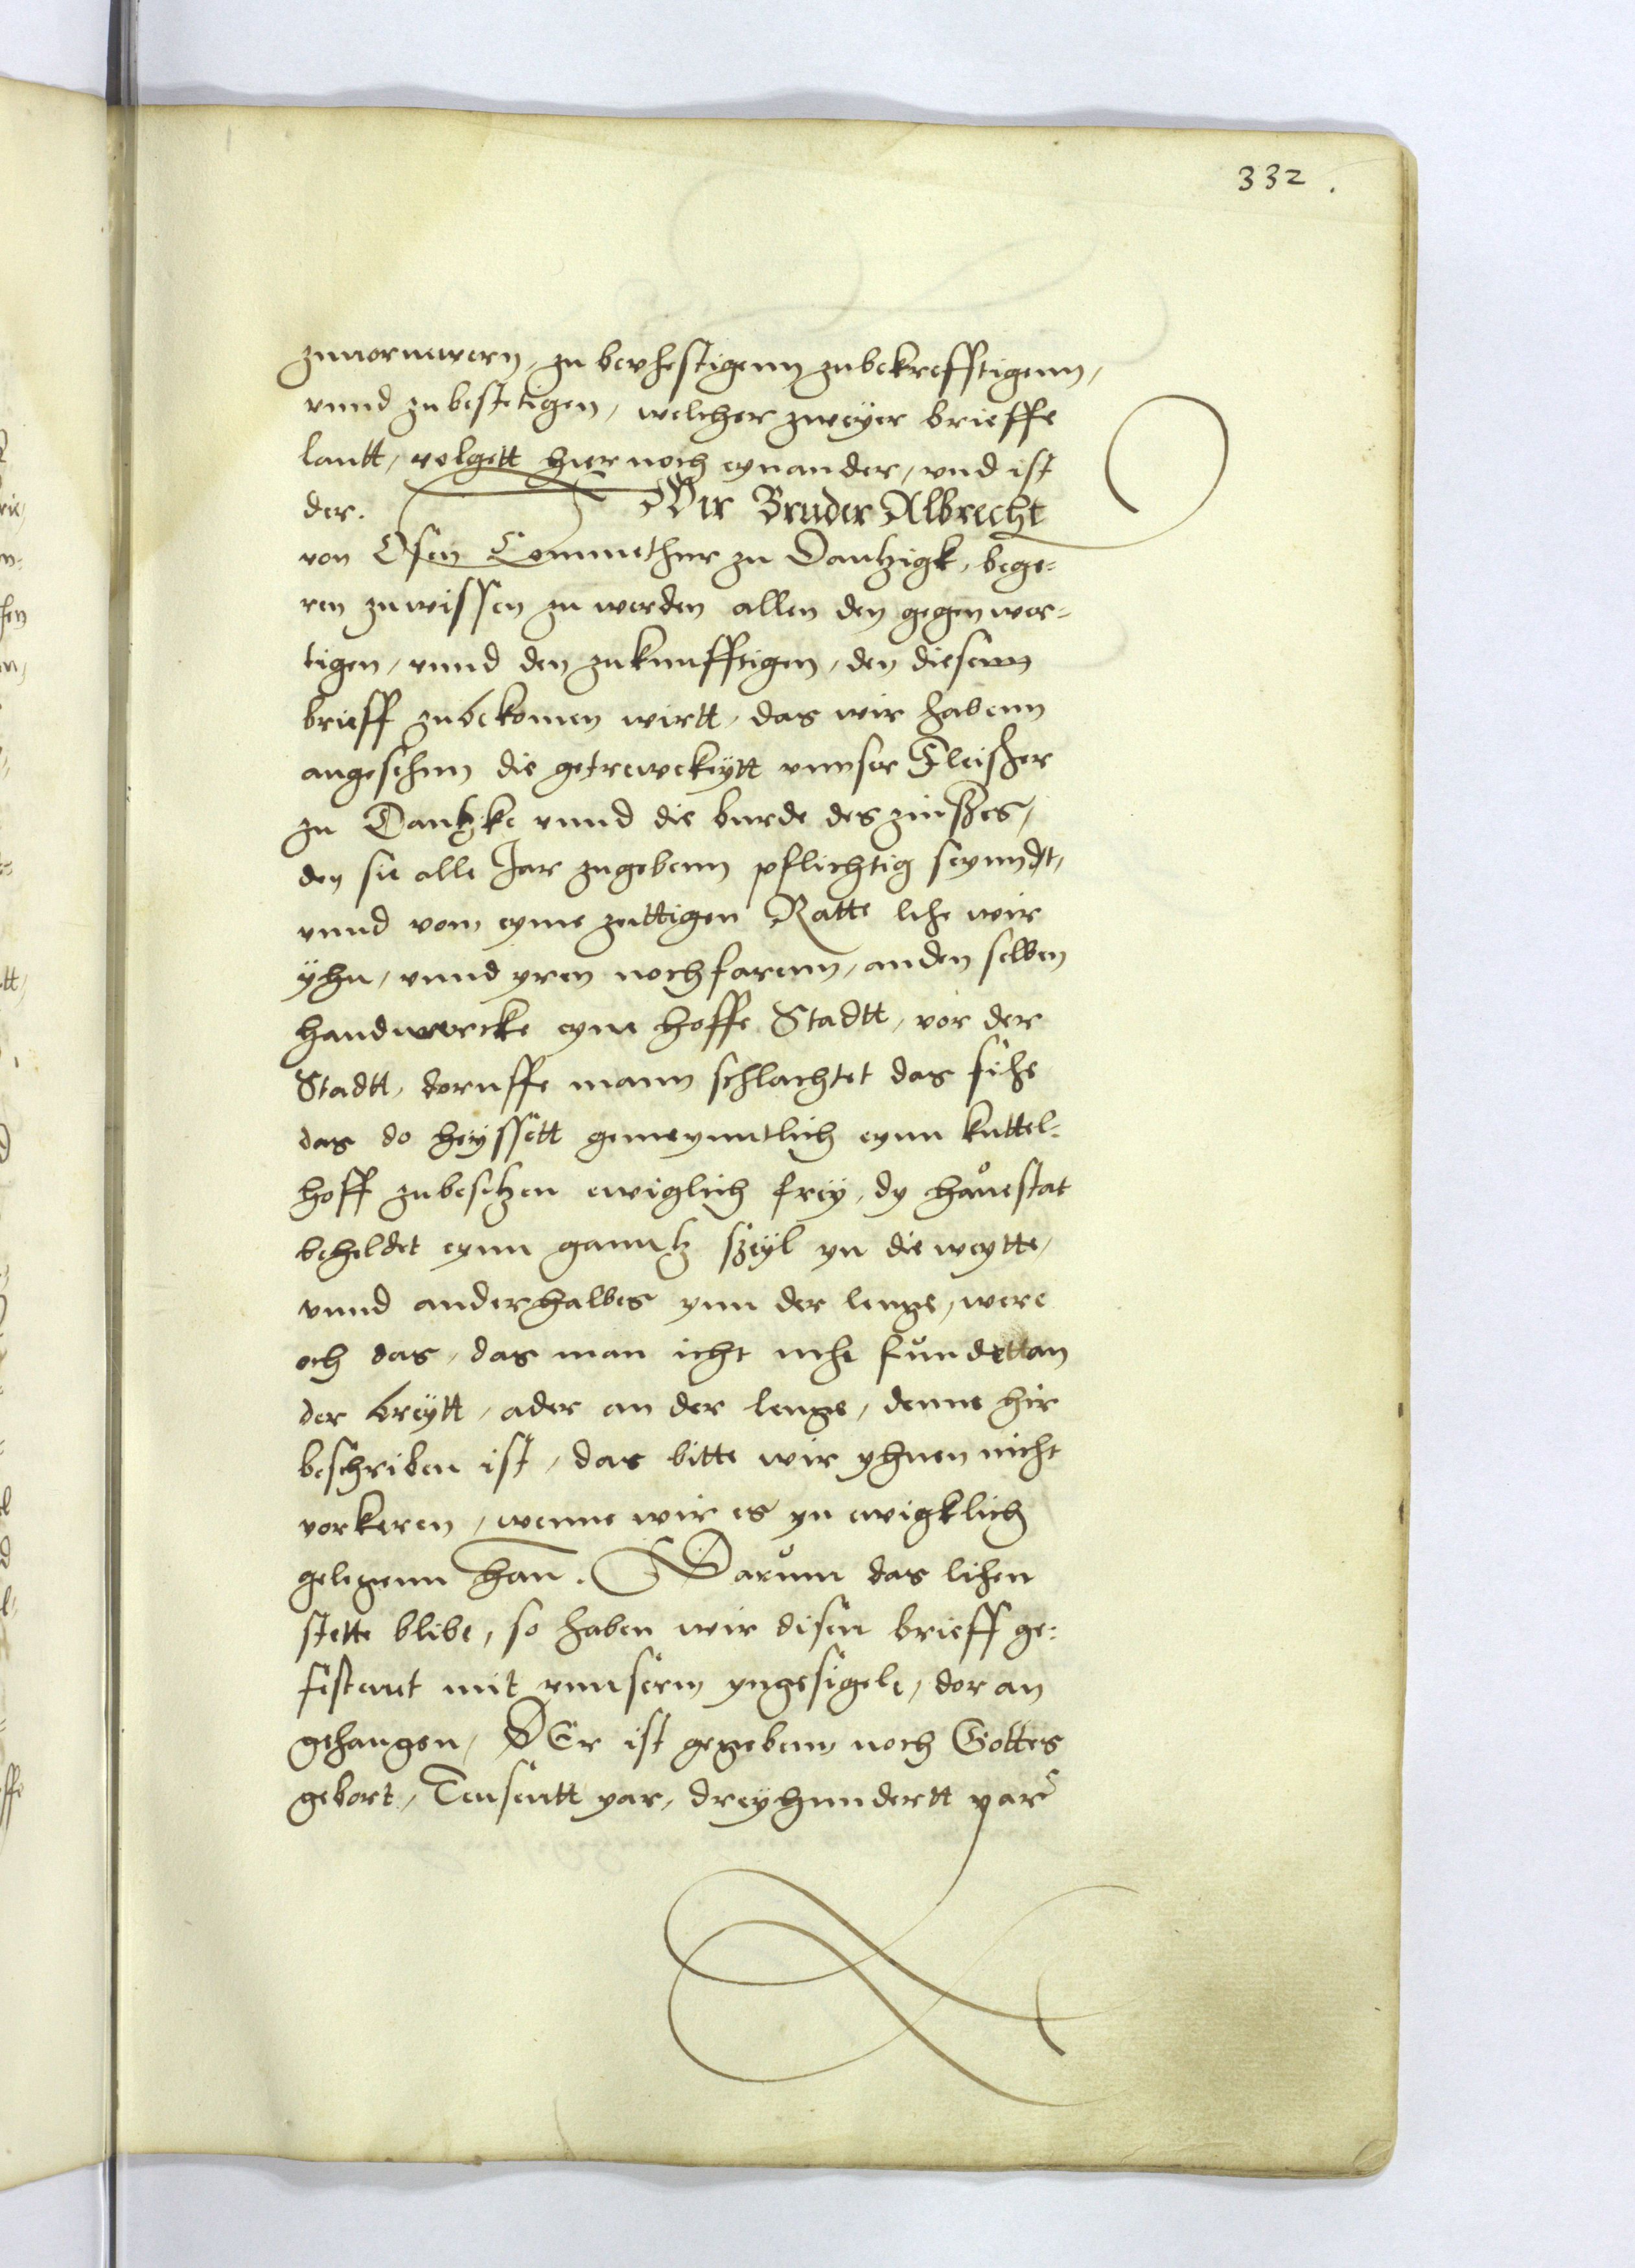 332.
zuuornewern, zu beuhestigenn zubekrefftigenn,
vnnd zubestetigen, welcher zweyer brieffe
lautt, volgett hier noch eynander, vnd ist
der. Wir Bruder Albrecht
von Osen Commethur zu Dantzigk, bege-
ren zuwissen zu werden allen den gegenwer-
tigen, vnnd den zukunfftigen, den diesenn
brieff zubekomen wirtt, das wir habenn
angesehnn die getrewekeytt vnnser Fleischer
zu Dantzke vnnd die burde des zinsses,
den sie alle Jar zugebenn pflichtig seynndt,
vnnd vom eyme zuttigen Ratte lihe wir
yhn, vnnd yren nochfarenn, an den selben
handwercke eyne hoffe Stadtt, vor der
Stadtt, doruffe mann schlachtet das fihe
das do heyssett gemeynntlich eynn kuttel-
hoff zubesitzen ewiglich frey, dy houestat
beheldet eynn ganntz szeyl yn die weytte,
vnnd anderhalbes ynn der lenge, were
och das, das man icht mehe fundett an
der breytt, ader an der lenge, denne hir
beschriben ist, das bitte wir yhnen nicht
vorkeren, wenne wir es yn ewigklich
gelegenn han. Darum das lihen
stette blibe, so haben wir disen brieff ge-
festent mit vnnserm yngesigele, dor an
gehangen, DEr ist gegebenn noch Gottes
gebort, Teusentt yar, dreyhundertt yar